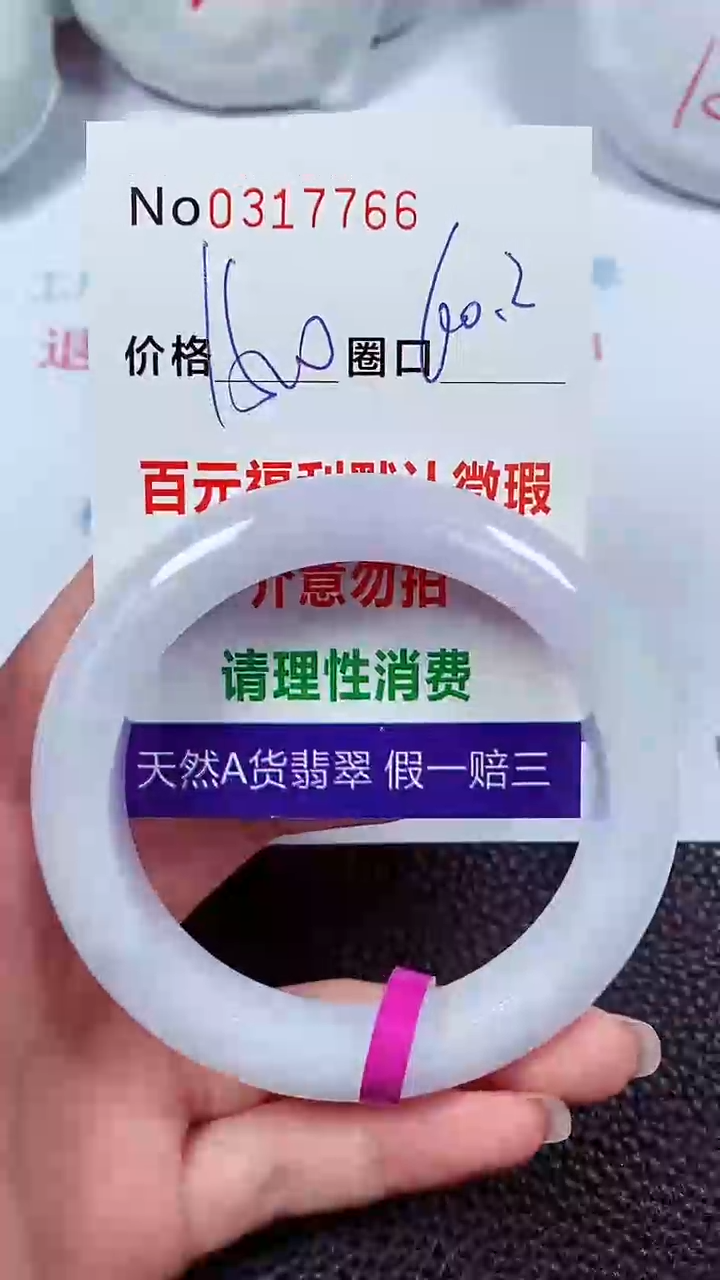 No0317766
价格1600 圈口60.2
百元福利默认微瑕
介意勿拍
请理性消费
天然A货翡翠 假一赔三
退